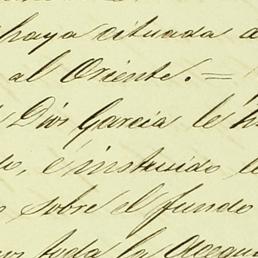 haya cituada a
al Oriente. =
Dios Garcia le h
do, é instruido le
sobre el fundo
toda la Acequ